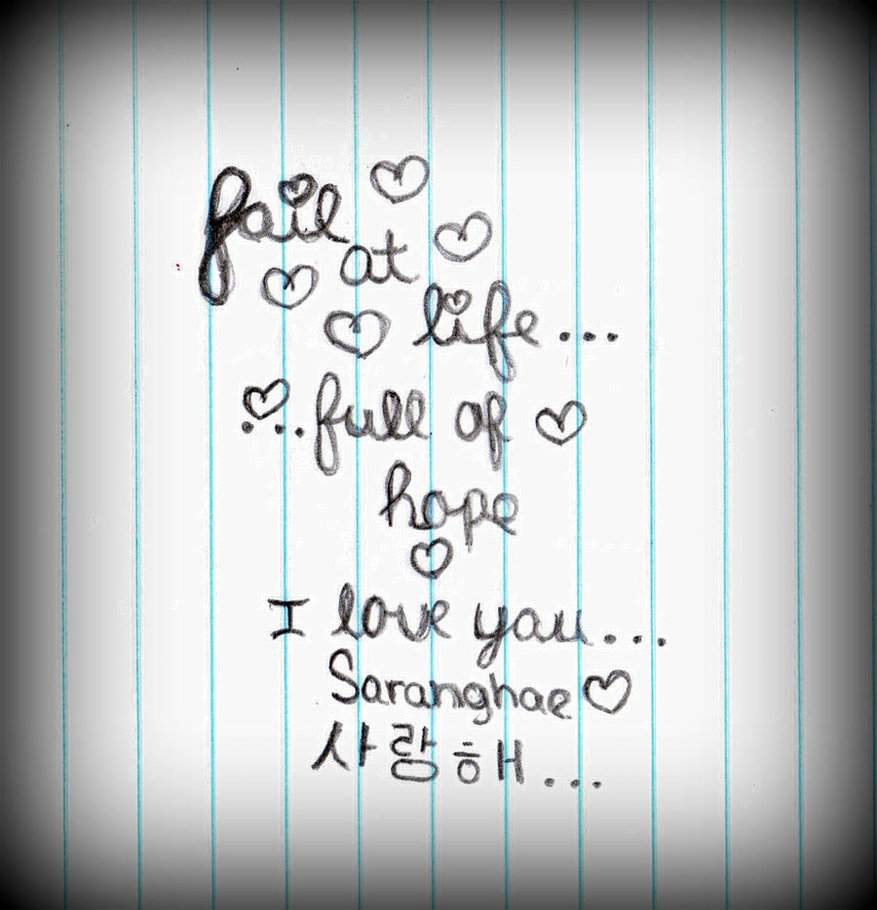 fail
at
life...
...full of
hope
I love you...
Saranghae
사랑해...